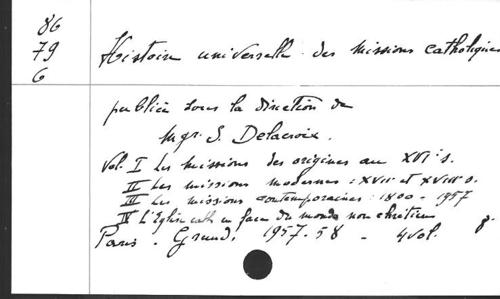 86
79
6
Histoire universelle des missions catholiques
publiée sous la direction de
Mgr. S. Delacroix.
Vol. I Les missions des origines au XVIe s.
II Les missions modernes : XVII et XVIII s.
III Les missions contemporaines : 1800 - 1957
IV L'Eglise cath. en face du monde non chrétien
Paris. Grund. 1957-58 - 4 vol. 8°